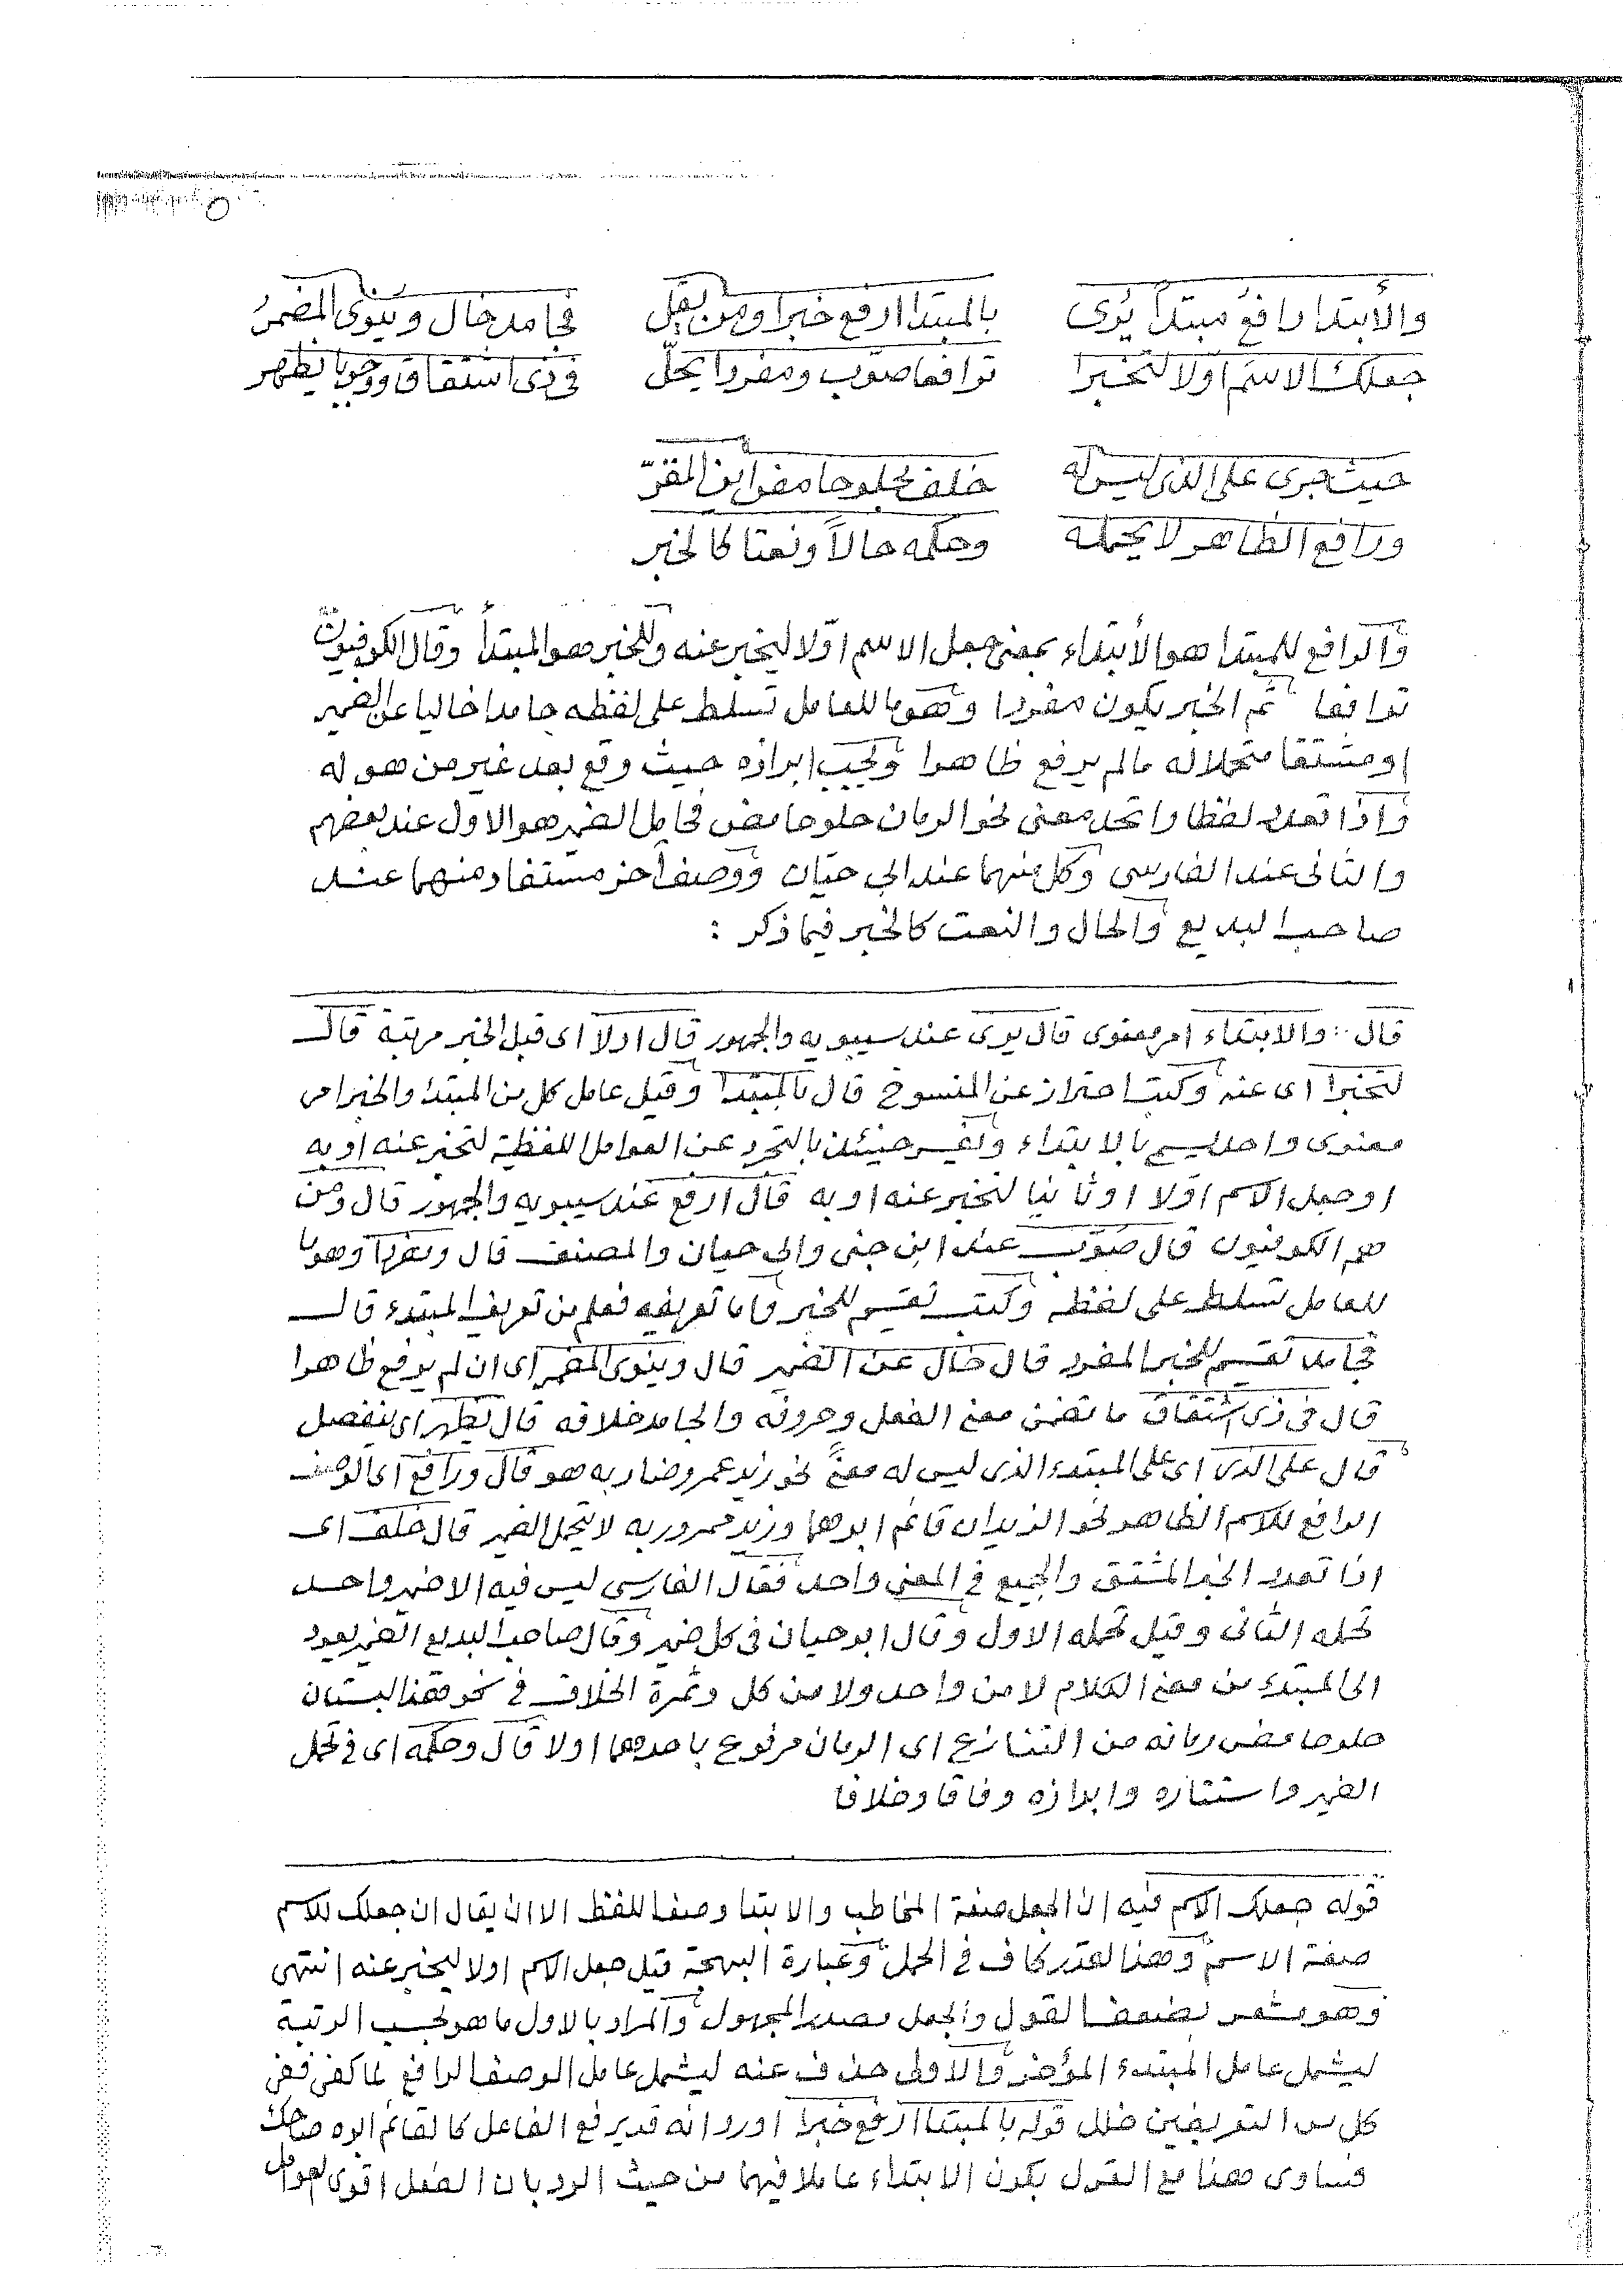 والأبتدا رافع مبتدأ يُرى بالمبتدا ارفع خبرا ومن يقل فجامد خال وينوى المضمرُ
جعلك الاسم اولا لتخبرا ترافعا صوّب ومفردا يحلّ فى ذى اشتقاق ووجوبا يظهر
حيث جرى على الذى ليس له خلف بحلو حامض اين المقرّ
ورافع الظاهر لا يحمله وحكمه حالاً ونعتا كالخبر
والرافع للمبتدا هو الأبتداء بمعنى جعل الاسم اوّلا ليخبر عنه وللخبر هو المبتدأ وقال الكوفيون
ترافعا ثم الخبر يكون مفردا وهو ما للعامل تسلط على لفظه جامدا خاليا عن الضمير
او مشتقا متحملا له ما لم يرفع ظاهرا ويجب ابرازه حيث وقع بعد غير من هو له
واذا تعدد لفظا واتحد معنى نحو الرمان حلو حامض فحامل الضمير هو الاول عند بعضهم
والثانى عند الفارسى وكل منهما عند ابى حيّان ووصف أخر مستفاد منهما عند
صاحب البديع والحال والنعت كالخبر فيما ذكر :
قال : والابتداء امر معنوى قال يرى عند سيبويه والجمهور قال اولا اى قبل الخبر مرتبة قال
لتخبرا اى عنه وكتب احتراز عن المنسوخ قال بالمبتدا وقيل عامل كل من المبتدا والخبر امر
معنوى واحد يسمى بالابتداء وتفسر حينئذ بالتجرد عن العوامل اللفظية لتخبر عنه او به
او جعل الاسم اوّلا او ثانيا لتخبر عنه او به قال ارفع عند سيبويه والجمهور قال ومن
هم الكوفيون قال صوّب عند ابن جنى وابى حيان والمصنف قال ومفردا وهو ما
للعامل تسلط على لفظه وكتب تقسيم للخبر واما تعريفه فعلم من تعريف المبتدء قال
فجامد تقسيم للخبر المفرد قال خال عن الضمير قال وينوى المضمر اى ان لم يرفع ظاهرا
قال فى ذى اشتقاق ما تضمن معنى الفعل وحروفه والجامد خلافه قال يظهر اى ينفصل
قال على الذى اى على المبتدء الذى ليس له معنىً نحو زيد عمرو ضاربه هو قال ورافع اى الوصف
الرافع للاسم الظاهر نحو الزيدان قائم ابوهما وزيد ممرور به لا يتحمل الضمير قال خلف اى
اذا تعدد الخبر المشتق والجميع فى المعنى واحد فقال الفارسى ليس فيه الا ضمير واحد
تحمله الثانى وقيل تحمله الاول وقال ابو حيان فى كل ضمير وقال صاحب البديع الضمير يعود
الى المبتدء من معنى الكلام لا من واحد ولا من كل وثمرة الخلاف فى نحو هذا البستان
حلو حامض رمانه من التنازع اى الرمان مرفوع باحدهما اولا قال وحكمه اى فى تحمل
الضمير واستتاره وابرازه وفاقا وخلافا
قوله جعلك الاسم فيه ان الجعل صفة المخاطب والابتدا وصفا للفظ الا ان يقال ان جعلك للاسم
صفة الاسم وهذا القدر كاف فى الحمل وعبارة البهجة قيل جعل الاسم اولا ليخبر عنه انتهى
وهو مشعر بضعف القول والجعل مصدر المجهول والمراد بالاول ما هو بحسب الرتبة
ليشمل عامل المبتدء المؤخر والاولى حذف عنه ليشمل عامل الوصف الرافع لما كفى ففى
كل من التعريفين خلل قوله بالمبتدا ارفع خبرا اورد انه قد يرفع الفاعل كالقائم ابوه ضاحك
فساوى هذا مع القول بكون الابتداء عاملا فيهما من حيث الرد بان الفعل اقوى العوامل